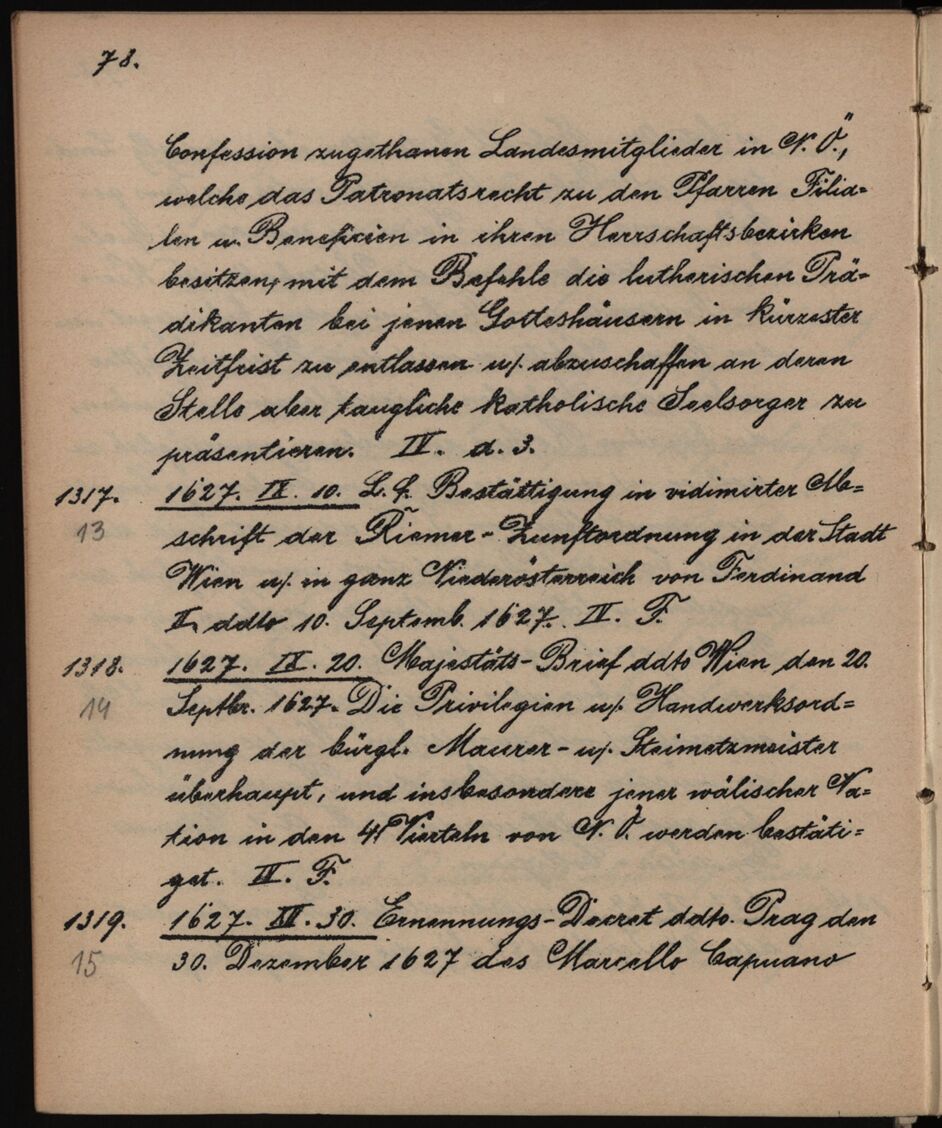 78.
Confession zugethanen Landesmitglieder in N. Ö.,
welche das Patronatsrecht zu den Pfarren Filia=
len u. Beneficien in ihren Herrschaftsbezirken
besitzen, mit dem Befehle die lutherischen Prä=
dikanten bei jenen Gotteshäusern in kürzester
Zeitfrist zu entlassen u. abzuschaffen an deren
Stelle aber taugliche katholische Seelsorger zu
präsentieren. IV. a. 3.
1317. 1627. IX. 10. L. f. Bestättigung in vidimirter Ab=
13 schrift der Riemer-Zunftordnung in der Stadt
Wien u. in ganz Niederösterreich von Ferdinand
II. ddto 10. Septemb. 1627. IV. F.
1318. 1627. IX. 20. Majestäts-Brief ddto Wien den 20.
14 Septbr. 1627. Die Privilegien u. Handwerksord=
nung der bürgl. Maurer- u. Steimetzmeister
überhaupt, und insbesondere jener wälischer Na=
tion in den 4 Vierteln von N. Ö. werden bestäti=
get. IV. F.
1319. 1627. XII. 30. Ernennungs-Decret ddto. Prag den
15 30. Dezember 1627 des Marcello Capuano